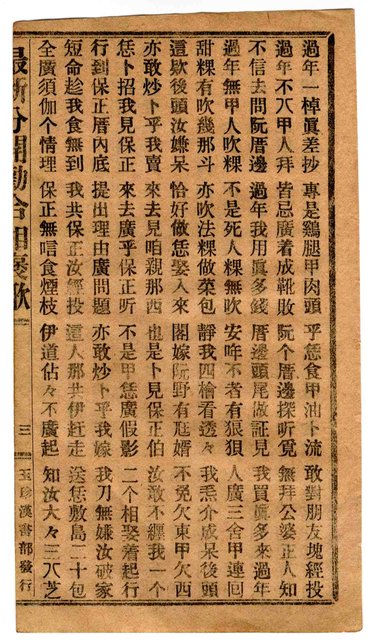 過年一棹眞差抄 專是鷄腿甲肉頭 乎恁食甲油卜流 敢對朋友塊經投
過年不八甲人拜 皆忌廣着成靴敗 阮个厝邊探听覓 無拜公婆正人知
不信去問阮厝邊 過年我用眞多錢 厝邊頭尾做証見 我買眞多來過年
過年無甲人吹粿 不是死人粿無吹 安年不者有狼狽 人廣三舍甲連回
甜粿有吹幾那斗 亦吹法粿做菜包 靜我四檜看透々 我忝介咸呆後頭
這歇後頭汝嫌呆 恰好做恁娶入來 閣嫁阮野有尫婿 不免欠東甲欠西
亦敢炒卜乎我賣 來去見咱親那西 也是卜見保正伯 汝敢不纒我一个
恁卜招我見保正 來去廣乎保正听 不是甲恁廣假影 二个相娶着起行
行到保正厝內底 提出理由廣問題 亦敢炒卜乎我嫁 我刀無嫌汝破家
短命趁我食無到 我共保正汝經投 這人那共伊赶走 送恁敷島二十包
全廣須伽个情理 保正無唁食煙枝 伊道佔々不廣起 知汝大々三八芝
最新分開勸合相褒歌 三 玉珍漢書部發行